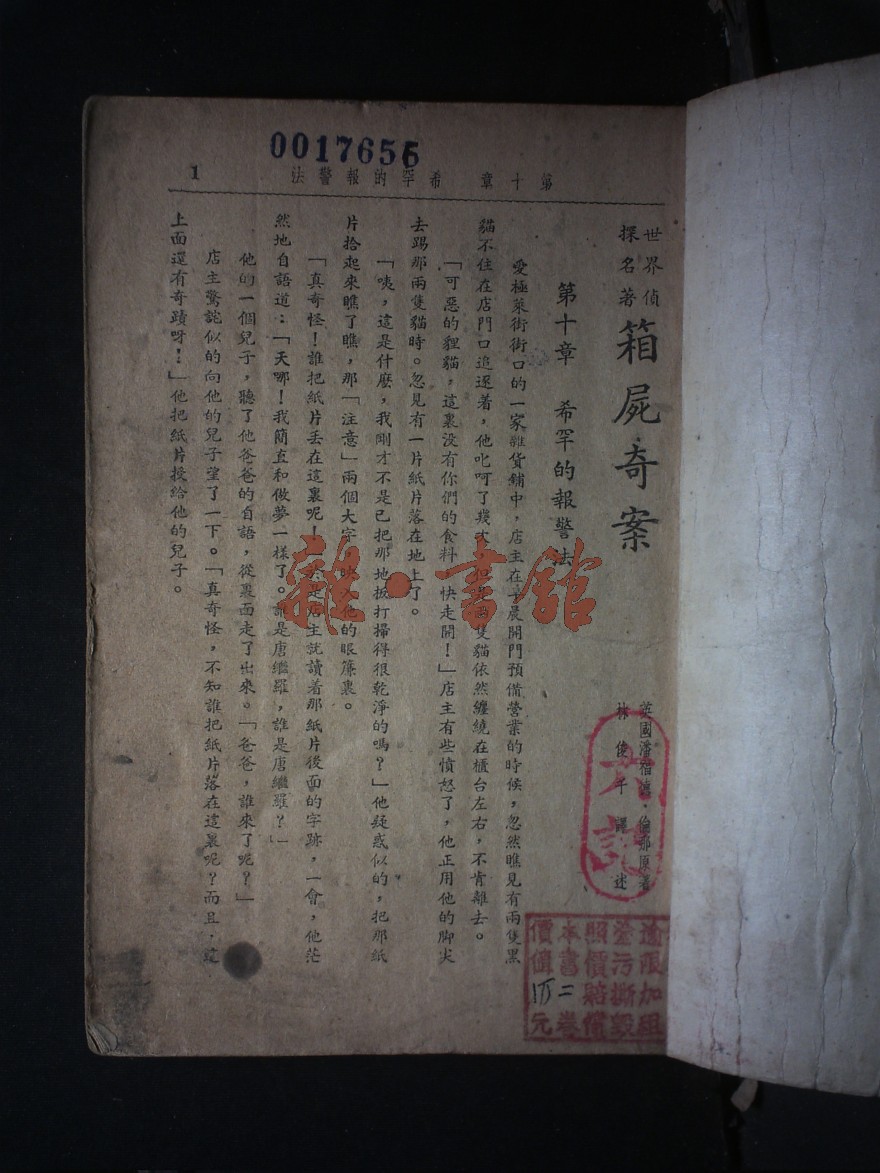 0017655
第十章 希罕的報警法
1
世界偵探名著
箱屍奇案
英國潘 原著
林俊千譯述
第十章 希罕的報警法
愛極萊街街口的一家雜貨鋪中，店主在早晨開門預備營業的時候，忽然瞧見有兩隻黑
貓不住在店門口追逐着，他叱呵了幾次，但是兩隻貓依然纏繞在櫃台左右，不肯離去。
「可惡的貍貓，這裏没有你們的食料，快走開！」店主有些憤怒了，他正用他的脚尖
去踢那兩隻貓時。忽見有一片紙片落在地上了。
「咦，這是什麼，我剛才不是已把那地扳打掃得很乾淨的嗎？」他疑惑似的，把那紙
片拾起來瞧了瞧，那「注意」兩個大字，映入他的眼簾裏。
「真奇怪！誰把紙片丢在這裏呢！於是店主就讀着那紙片後面的字跡，一會，他茫
然地自語道：「天哪！我簡直和做夢一樣了。誰是唐繼羅，誰是唐繼羅？」
他的一個兒子，聽了他爸爸的自語，從裏面走了出來。「爸爸，誰來了呢？」
店主驚詫似的向他的兒子望了一下。「真奇怪，不知誰把紙片落在這裏呢？而且，這
上面還有奇蹟呀！」他把紙片授給他的兒子。
逾限加租
塗污撕毀
照價賠償
本書二卷
價值 元
雜·書館